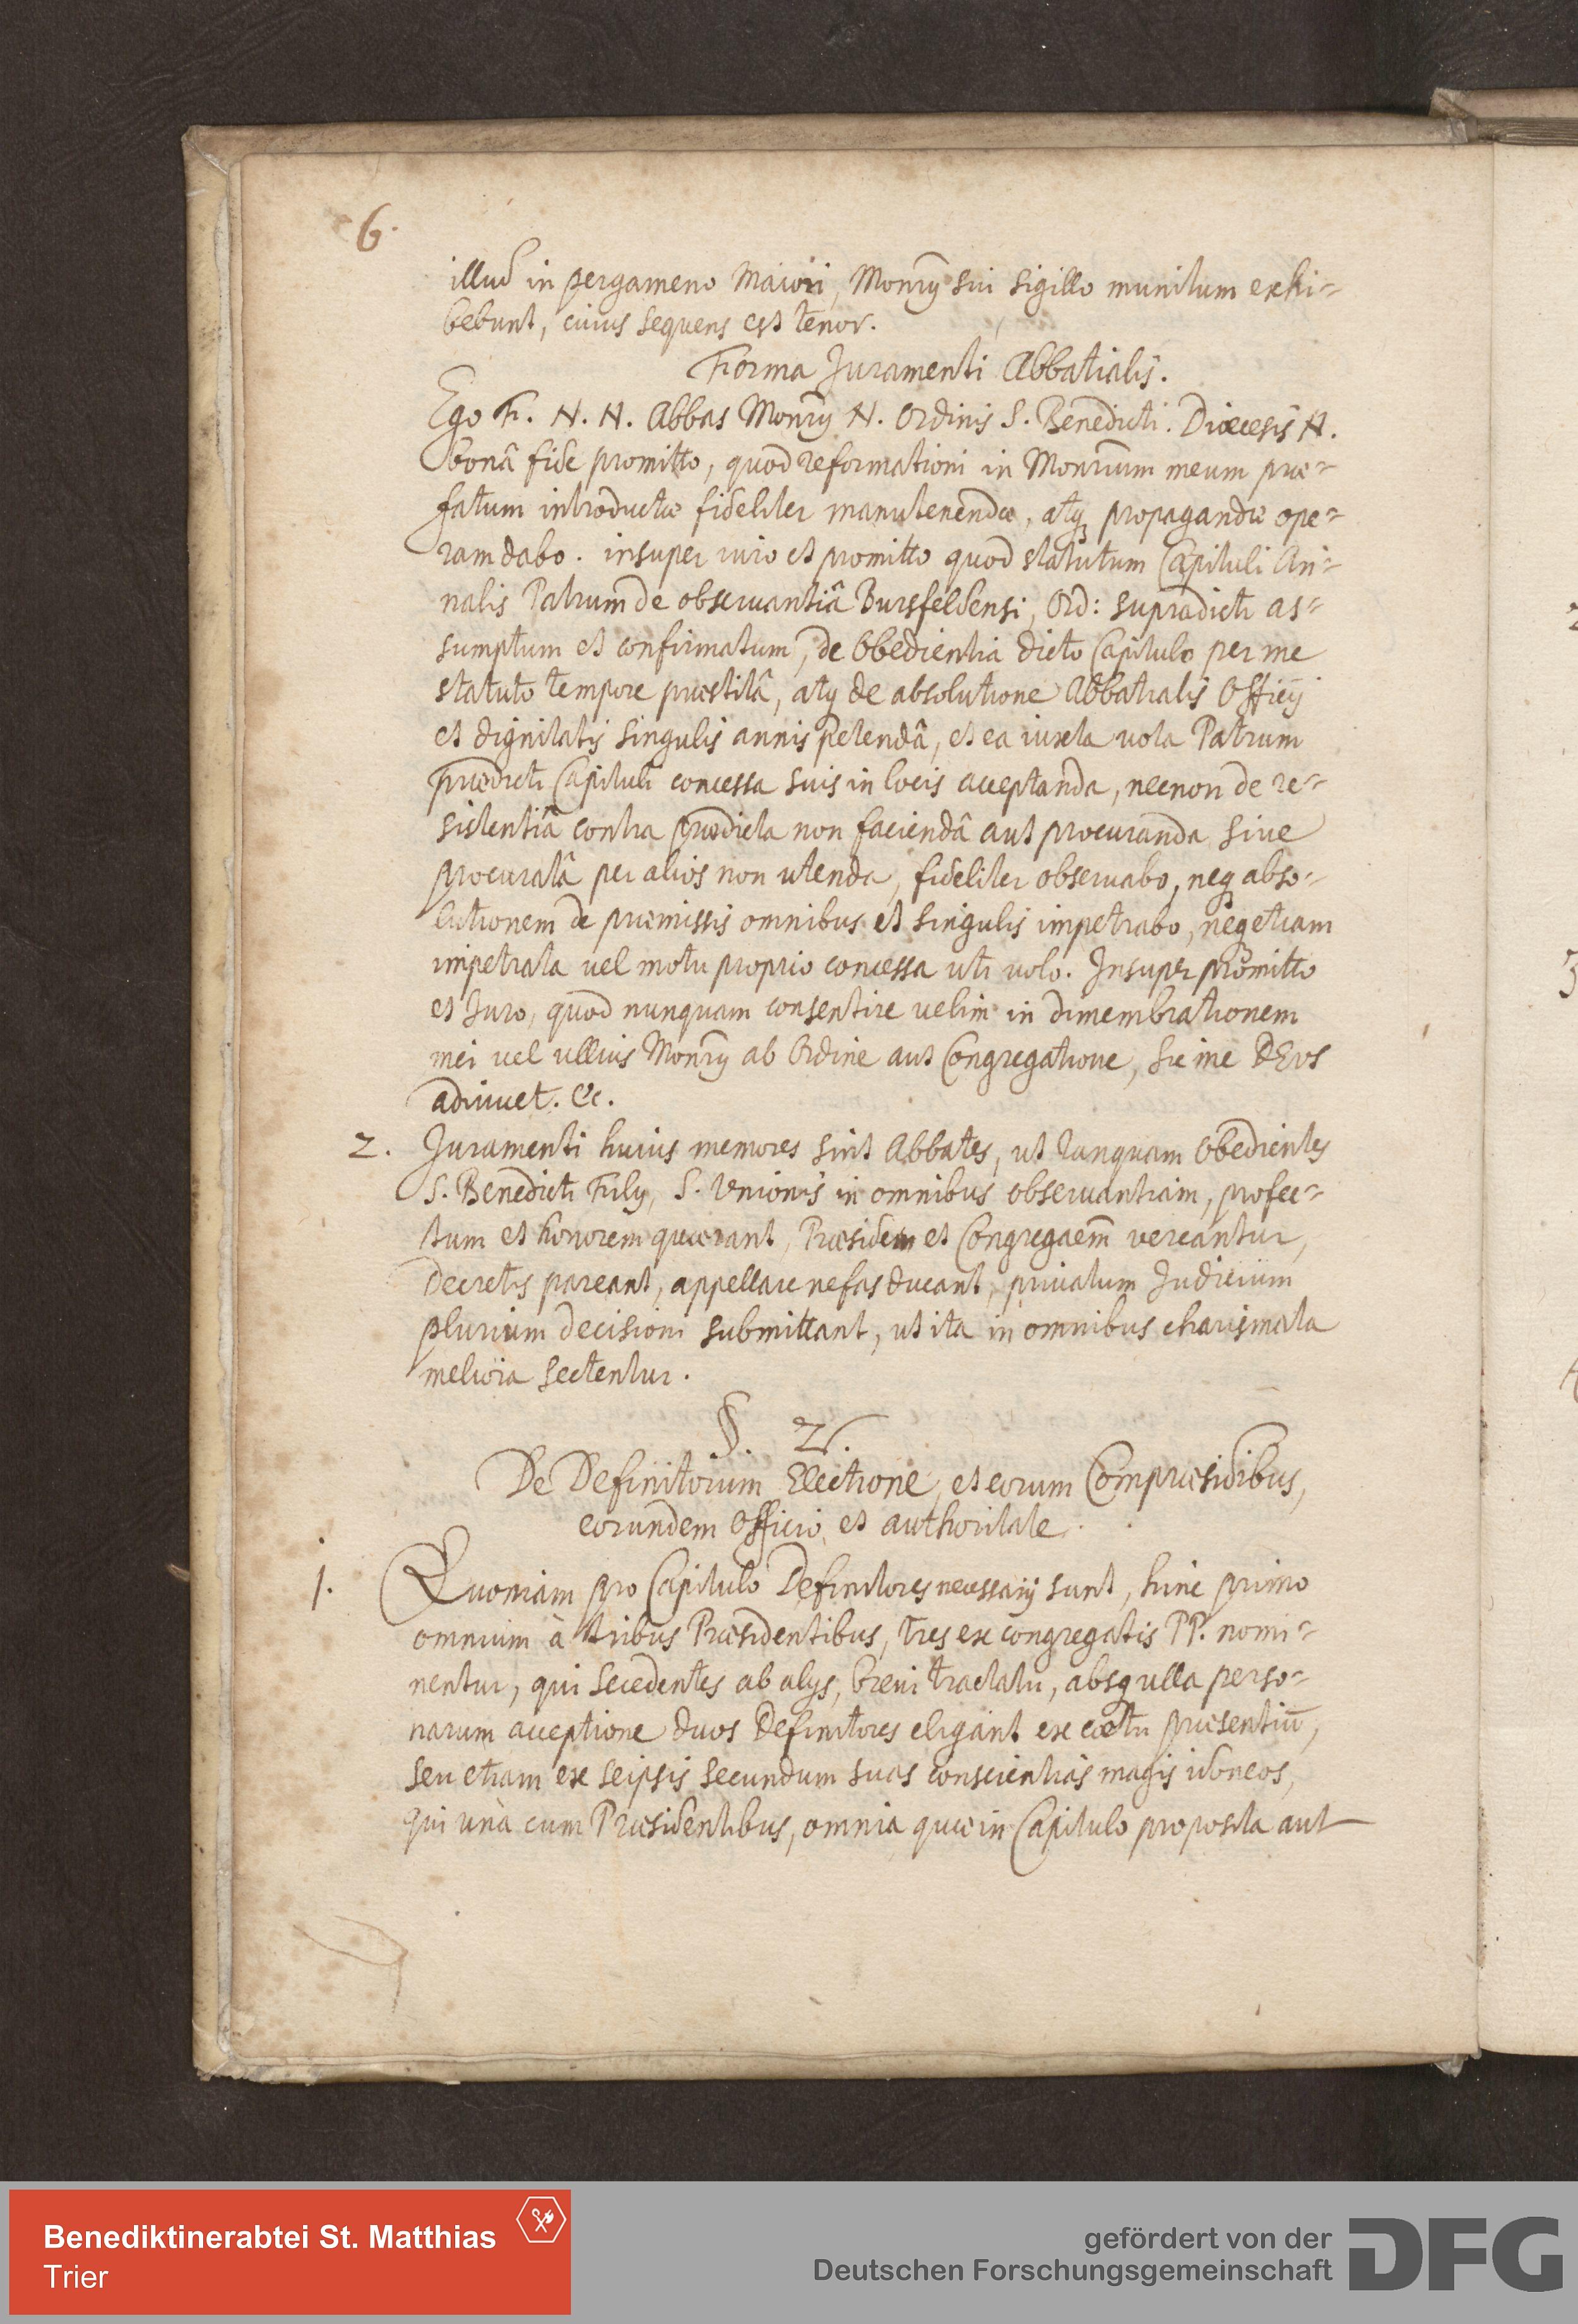 6.
illud in pergameno maiori, Monrȳ sui sigillo munitum exhi=
bebunt, cuius sequens est tenor.
Forma Juramenti Abbatialis.
Ego Fr. N. N. Abbas Monrȳ N. Ordinis S. Benedicti. Diœcesis N.
bonâ fide promitto, quod reformationi in Monrium meum præ=
fatum introductæ fideliter manutenendæ, atq propagandæ ope=
ram dabo. insuper iuro et promitto quod statutum Capituli An=
nalis Patrum de obseruantiâ Bursfeldensi, Ord: supradicti as=
sumptum et confirmatum, de obedientia dicto Capitulo per me
statuto tempore præstitâ, atq de absolutione Abbatialis Officÿ
et dignitatis singulis annis petendâ, et ea iuxta uota Patrum
prædicti Capituli concessa suis in locis acceptanda, necnon de re=
sistentiâ contra prædicta non faciendâ aut procuranda siue
procuratâ per alios non utenda, fideliter obseruabo, neq abso=
lutionem de præmissis omnibus et singulis impetrabo, neq etiam
impetrata uel motu proprio concessa uti uolo. Insuper promitto
et Juro, quod nunquam consentire uelim in dimembrationem
mei uel ullius Monrȳ ab Ordine aut Congregatione, sic me DEus
adiuuet. &c.
2. Juramenti huius memores sint Abbates, ut tanquam obedientes
S. Benedicti Filÿ, S. Unionis in omnibus obseruantiam, profec=
tum et honorem quærant, Præsidem et Congregaem̄ vereantur,
Decretis pareant, appellare nefas ducant, priuatum Judicium
plurium decisioni submittant, ut ita in omnibus charismata
meliora sectentur.
§. 2.
De Definitorum Electione, et eorum Compræsidibus,
eorundem officio, et authoritate.
1. Quoniam pro Capitulo Definitores necessarÿ sunt, hinc primo
omnium à tribus Præsidentibus, tres ex congregatis PP. nomi=
nentur, qui secedentes ab alÿs, breui tractatu, absq ulla perso=
narum acceptione duos Definitores eligant ex cœtu præsentiū,
seu etiam ex seipsis secundum suas conscientias magis idoneos,
qui unà cum Præsidentibus, omnia quæ in Capitulo proposita aut
Benediktinerabtei St. Matthias
Trier
gefördert von der
Deutschen Forschungsgemeinschaft
DFG